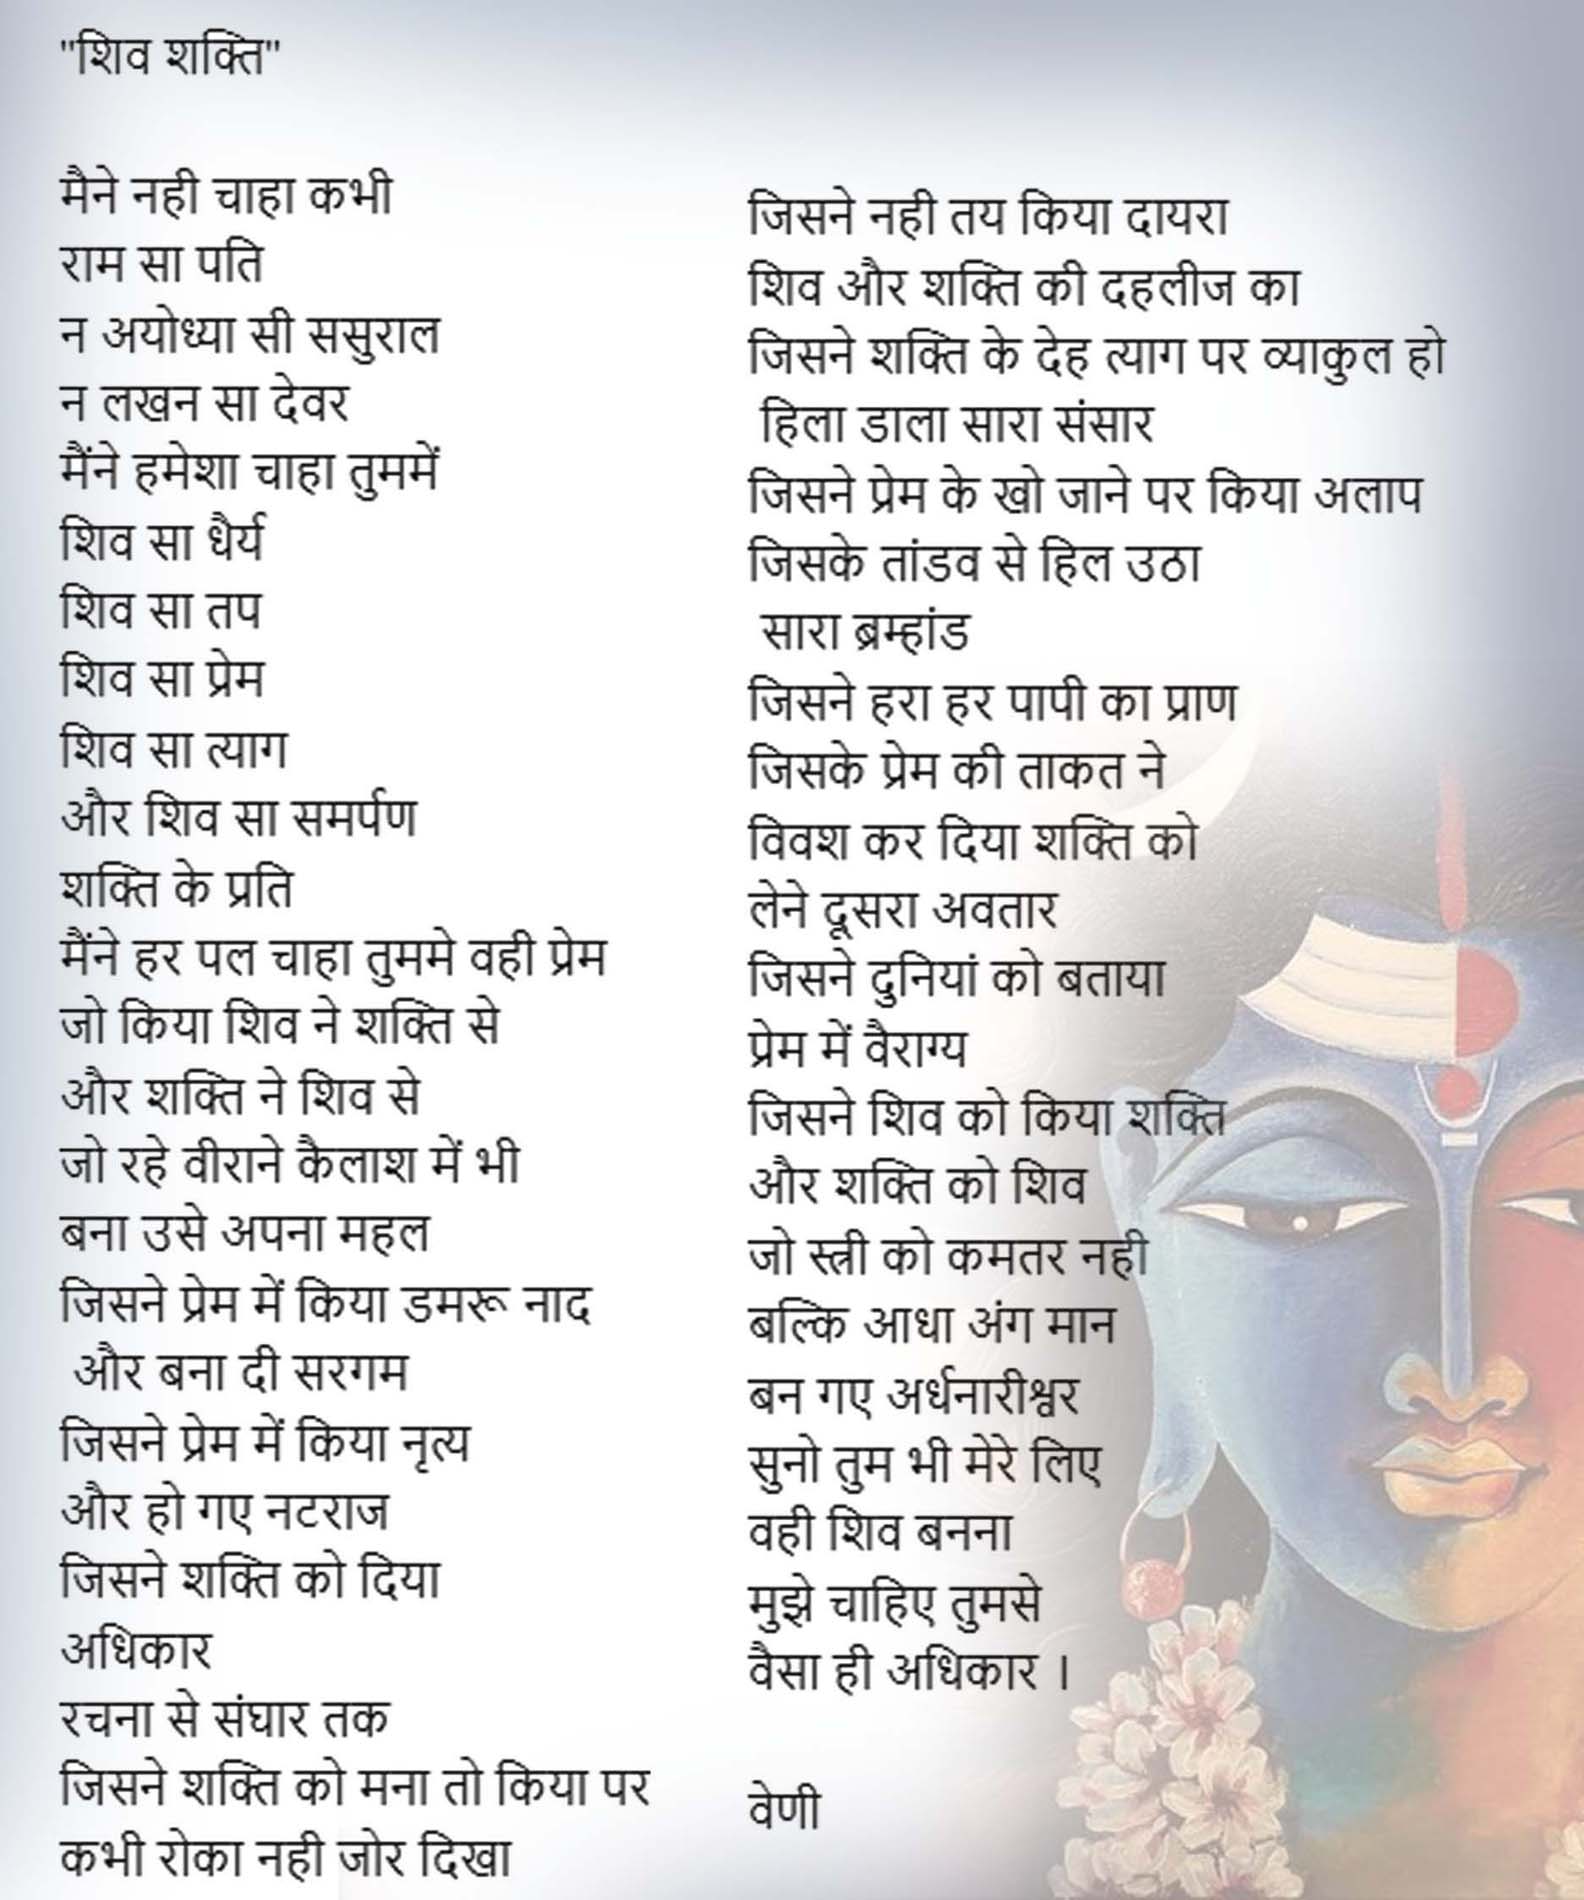 "शिव शक्ति"
मैने नही चाहा कभी
राम सा पति
न अयोध्या सी ससुराल
न लखन सा देवर
मैंने हमेशा चाहा तुममें
शिव सा धैर्य
शिव सा तप
शिव सा प्रेम
शिव सा त्याग
और शिव सा समर्पण
शक्ति के प्रति
मैंने हर पल चाहा तुममे वही प्रेम
जो किया शिव ने शक्ति से
और शक्ति ने शिव से
जो रहे वीराने कैलाश में भी
बना उसे अपना महल
जिसने प्रेम में किया डमरू नाद
और बना दी सरगम
जिसने प्रेम में किया नृत्य
और हो गए नटराज
जिसने शक्ति को दिया
अधिकार
रचना से संघार तक
जिसने शक्ति को मना तो किया पर
कभी रोका नही जोर दिखा
जिसने नही तय किया दायरा
शिव और शक्ति की दहलीज का
जिसने शक्ति के देह त्याग पर व्याकुल हो
हिला डाला सारा संसार
जिसने प्रेम के खो जाने पर किया अलाप
जिसके तांडव से हिल उठा
सारा ब्रम्हांड
जिसने हरा हर पापी का प्राण
जिसके प्रेम की ताकत ने
विवश कर दिया शक्ति को
लेने दूसरा अवतार
जिसने दुनियां को बताया
प्रेम में वैराग्य
जिसने शिव को किया शक्ति
और शक्ति को शिव
जो स्त्री को कमतर नही
बल्कि आधा अंग मान
बन गए अर्धनारीश्वर
सुनो तुम भी मेरे लिए
वही शिव बनना
मुझे चाहिए तुमसे
वैसा ही अधिकार ।
वेणी